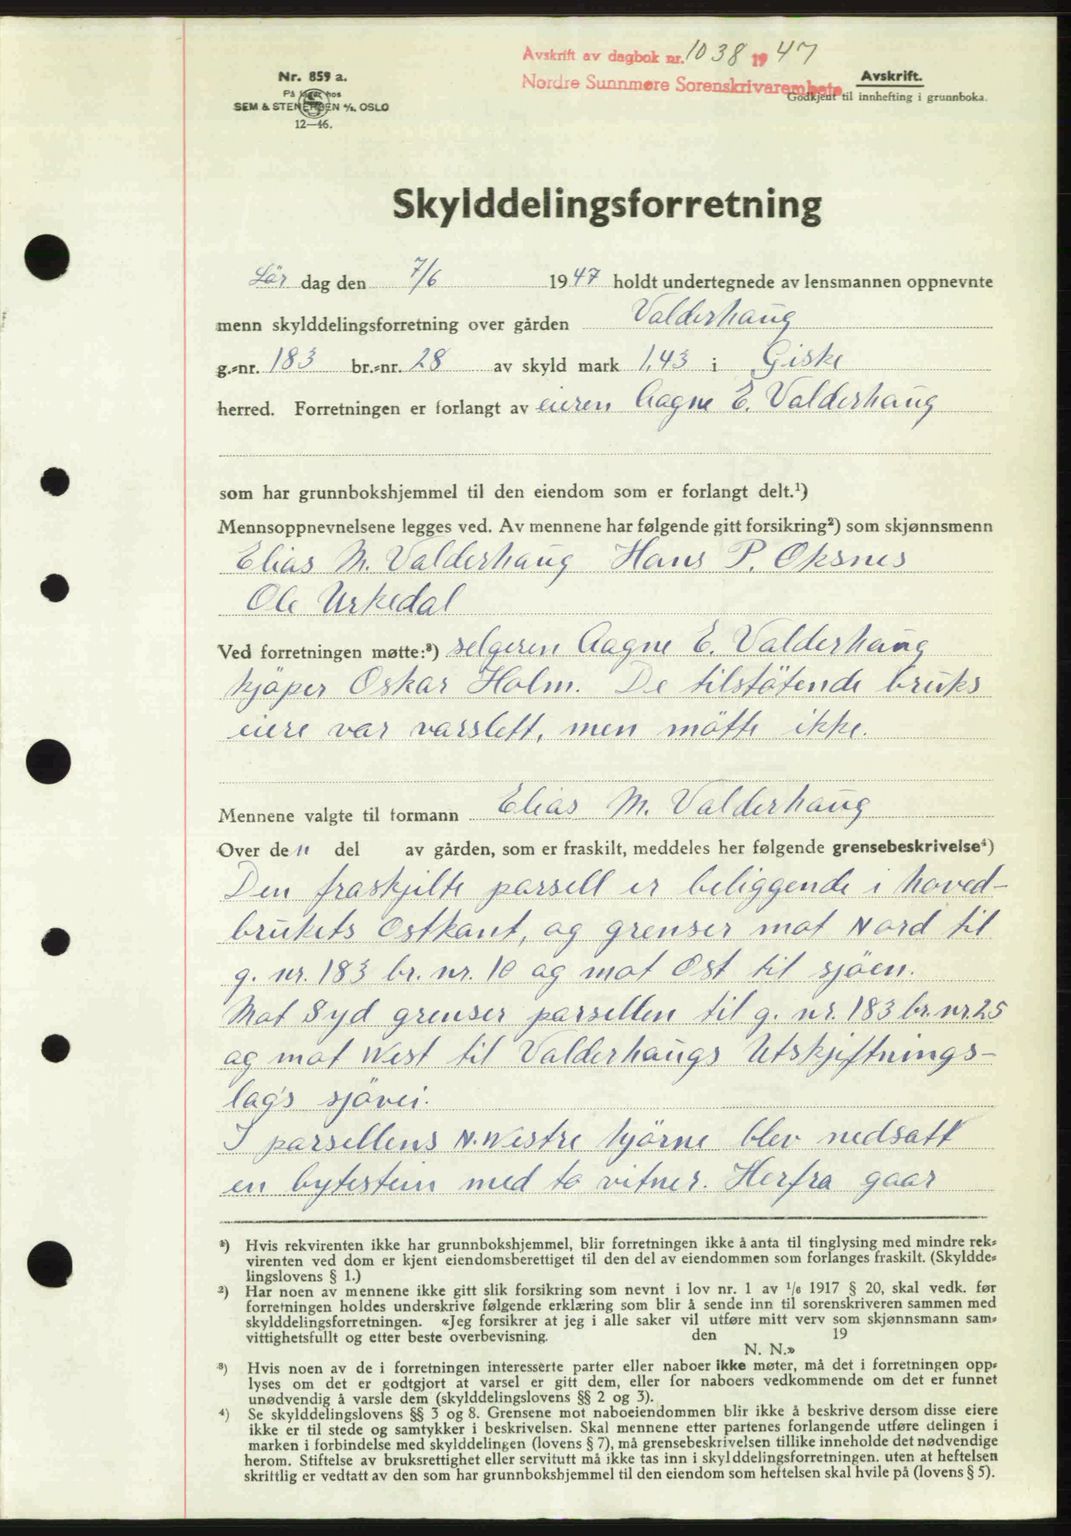 Avskrift av dagbok nr. 1038 1947
Nordre Sunnmøre Sorenskrivarembete
Nr. 859 a.
På lager hos
SEM & STENERSEN A/S. OSLO
12—46.
Avskrift.
Godkjent til innhefting i grunnboka.
Skylddelingsforretning
Lör dag den 7/6 1947 holdt undertegnede av lensmannen oppnevnte
menn skylddelingsforretning over gården Valderhaug
g.-nr. 183 br.-nr. 28 av skyld mark 1,43 i Giske
herred. Forretningen er forlangt av eieren Aagne E. Valderhaug
som har grunnbokshjemmel til den eiendom som er forlangt delt.¹)
Mennsoppnevnelsene legges ved. Av mennene har følgende gitt forsikring²) som skjønnsmenn
Elias M. Valderhaug Hans P. Oksnes
Ole Urkedal
Ved forretningen møtte:³) selgeren Aagne E. Valderhaug
kjöper Oskar Holm. De tilstötende bruks
eiere var varslett, men mötte ikke.
Mennene valgte til formann Elias M. Valderhaug
Over de n del av gården, som er fraskilt, meddeles her følgende grensebeskrivelse⁴)
Den fraskjilte parsell er beliggende i hoved-
brukets Ostkant, og grenser mot Nord til
g. nr. 183 br. nr. 10 og mot Ost til sjöen.
Mot Syd grenser parsellen til g. nr. 183 br. nr 25
og mot West til Valderhaugs Utskjiftnings-
lag's sjövei.
I parsellens N. Westre hjörne blev nedsatt
en bytestein med to vitner. Herfra gaar
¹) Hvis rekvirenten ikke har grunnbokshjemmel, blir forretningen ikke å anta til tinglysing med mindre rek-
virenten ved dom er kjent eiendomsberettiget til den del av eiendommen som forlanges fraskilt. (Skyldde-
lingslovens § 1.)
²) Har noen av mennene ikke gitt slik forsikring som nevnt i lov nr. 1 av 1/6 1917 § 20, skal vedk. før
forretningen holdes underskrive følgende erklæring som blir å sende inn til sorenskriveren sammen med
skylddelingsforretningen. «Jeg forsikrer at jeg i alle saker vil utføre mitt verv som skjønnsmann sam-
vittighetsfullt og etter beste overbevisning. den 19
N. N.»
³) Hvis noen av de i forretningen interesserte parter eller naboer ikke møter, må det i forretningen opp-
lyses om det er godtgjort at varsel er gitt dem, eller for naboers vedkommende om det er funnet
unødvendig å varsle dem (skylddelingslovens §§ 2 og 3).
⁴) Se skylddelingslovens §§ 3 og 8. Grensene mot naboeiendommen blir ikke å beskrive dersom disse eiere
ikke er til stede og samtykker i beskrivelsen. Skal mennene etter partenes forlangende utføre delingen i
marken i forbindelse med skylddelingen (lovens § 7), må grensebeskrivelsen tillike inneholde det nødvendige
herom. Stiftelse av bruksrettighet eller servitutt må ikke tas inn i skylddelingsforretningen. uten at heftelsen
skriftlig er vedtatt av den som har grunnbokshjemmel til den eiendom som heftelsen skal hvile på (lovens § 5).